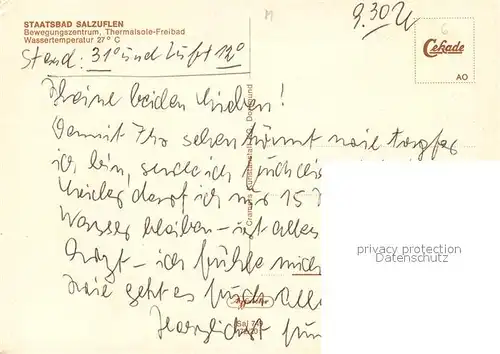 STAATSBAD SALZUFLEN
Bewegungszentrum, Thermalsole-Freibad
Wassertemperatur 27° C
9.30 U
Stand: 31° und Luft 12°
Cekade
AO
Meine beiden Lieben!
Damit Ihr sehen könnt wie tapfer
ich bin, sende ich Euch die
Leider darf ich nur 15
Wasser bleiben – ist alles
Arzt – ich fühle mich
Wie geht es Euch alle
Herzlichst
Cramers Kunstanstalt KG, Dortmund
privacy protection
Datenschutz